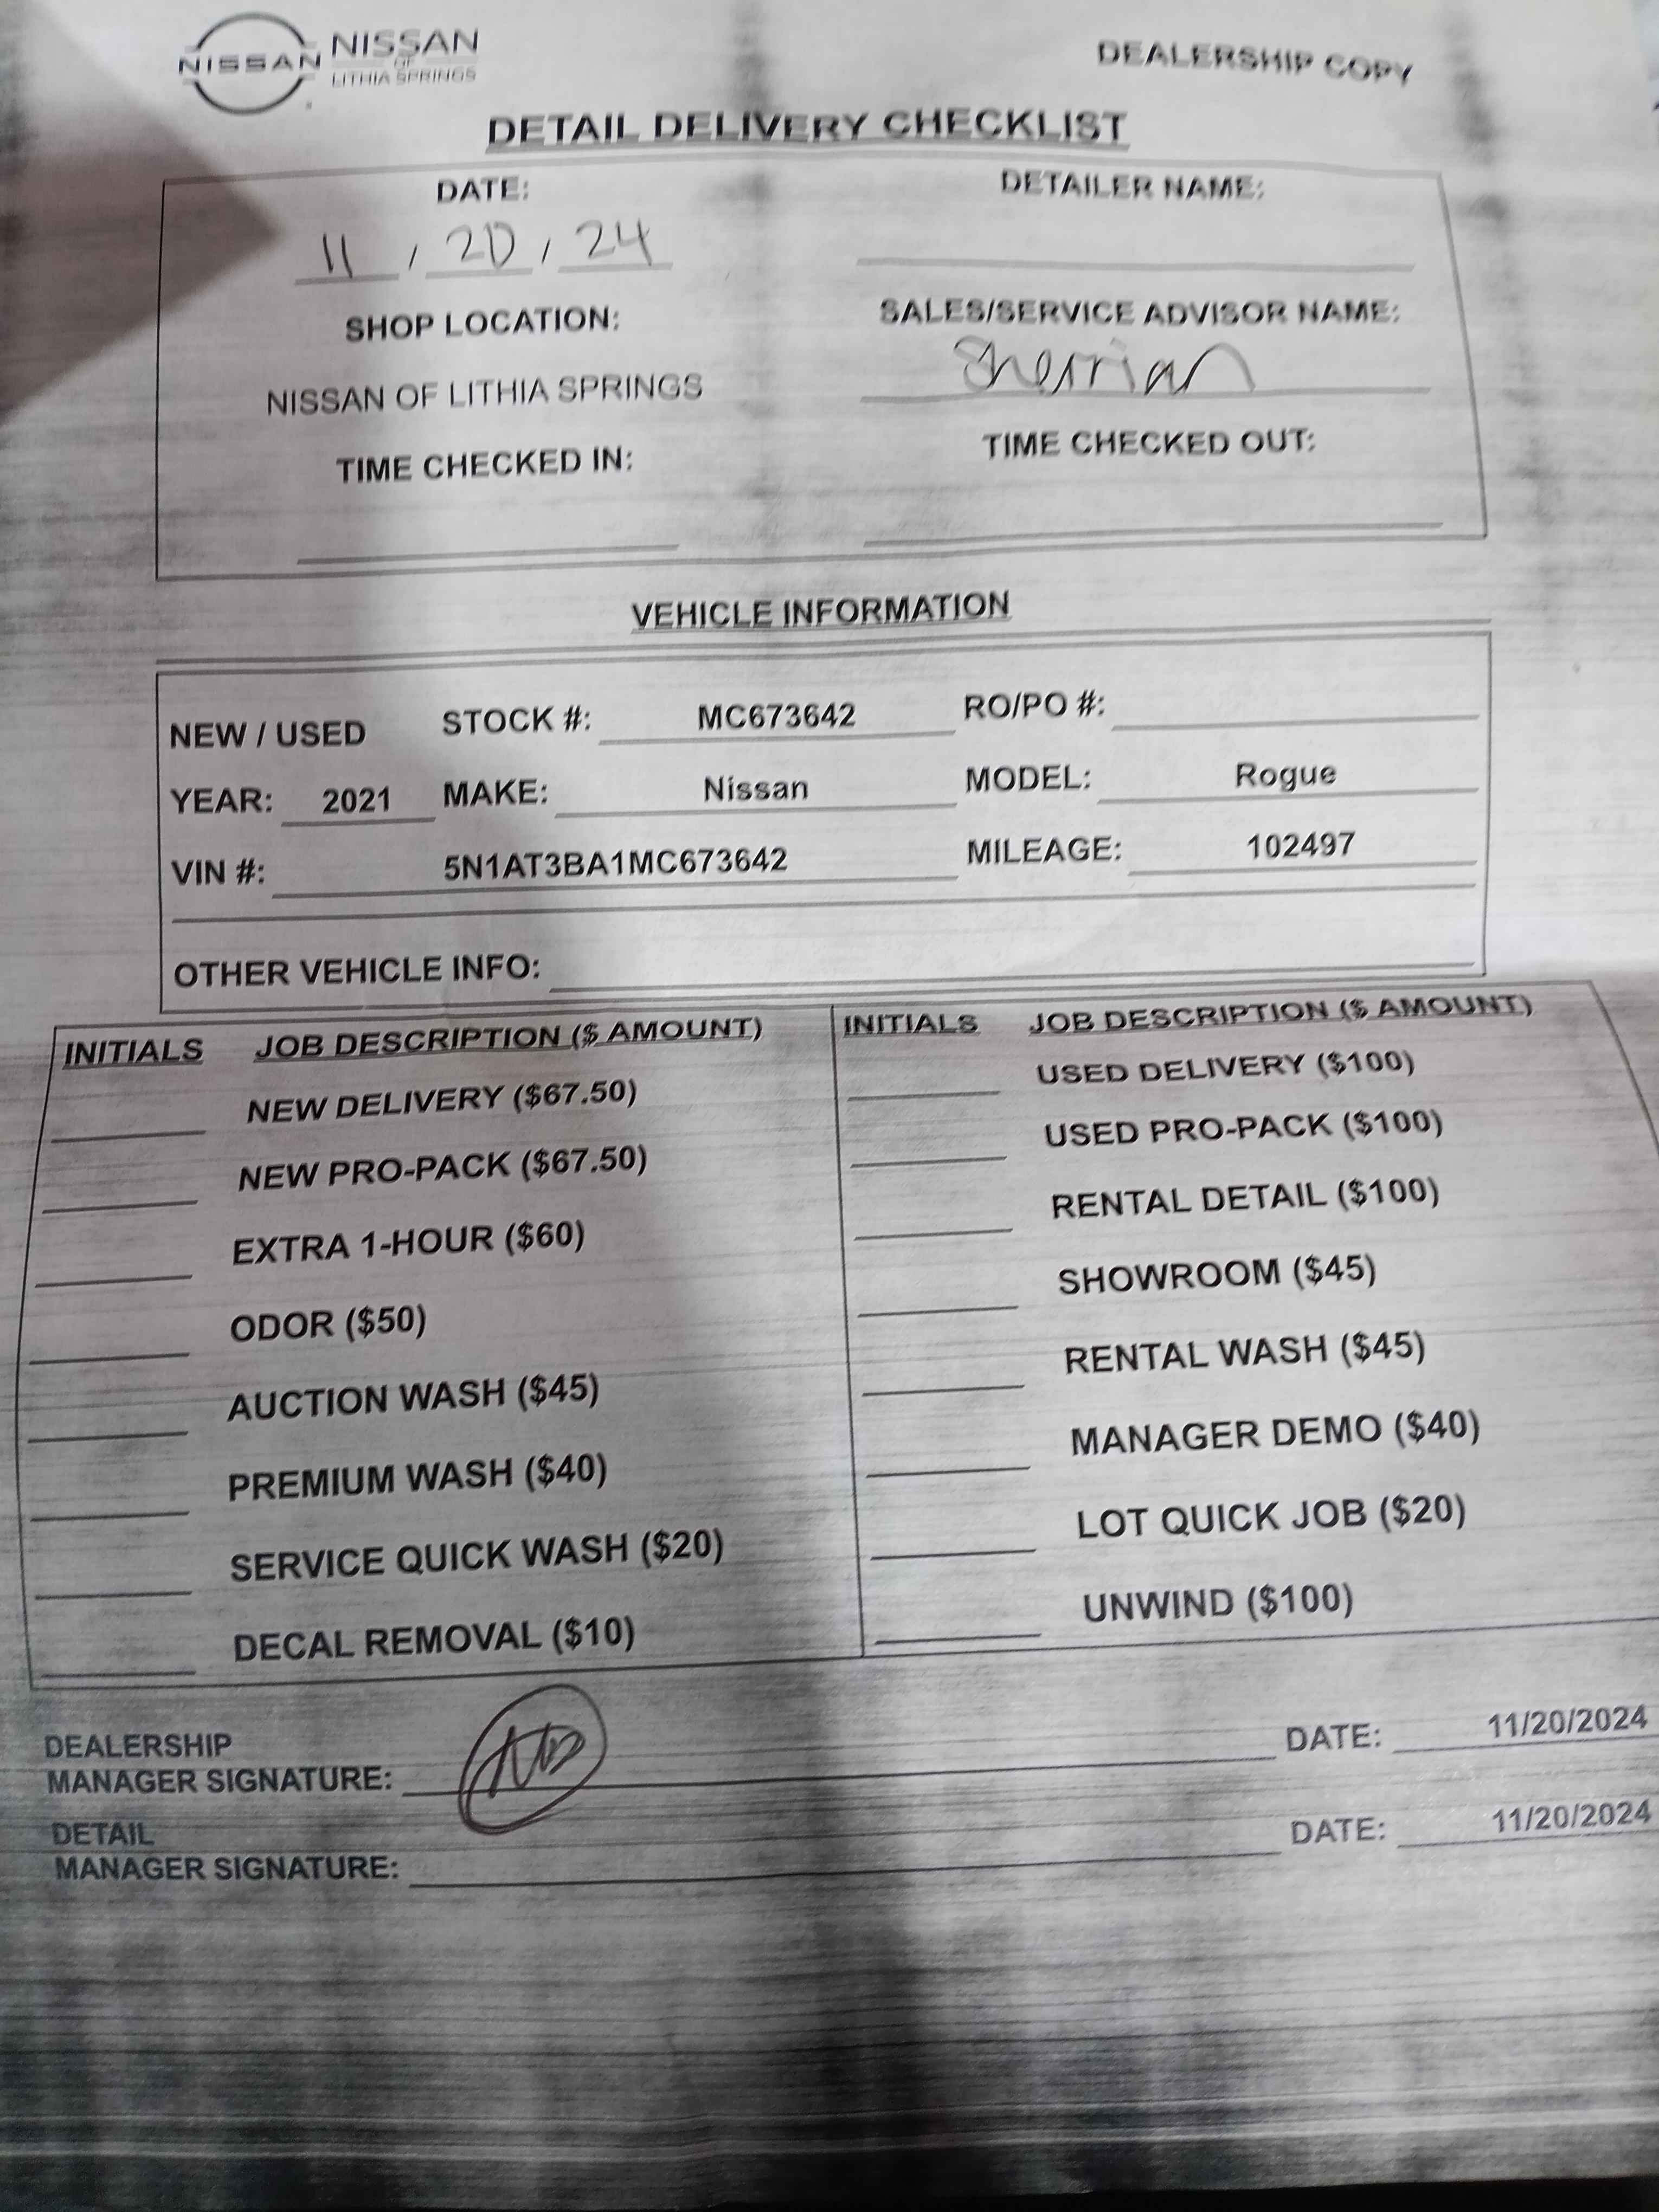 NISSAN
NISSAN
OF
LITHIA SPRINGS
DEALERSHIP COPY
DETAIL DELIVERY CHECKLIST
DATE:
11 / 20 / 24
DETAILER NAME:
SHOP LOCATION:
NISSAN OF LITHIA SPRINGS
SALES/SERVICE ADVISOR NAME:
Sherrian
TIME CHECKED IN:
TIME CHECKED OUT:
VEHICLE INFORMATION
NEW / USED STOCK #: MC673642 RO/PO #:
YEAR: 2021 MAKE: Nissan MODEL: Rogue
VIN #: 5N1AT3BA1MC673642 MILEAGE: 102497
OTHER VEHICLE INFO:
INITIALS JOB DESCRIPTION ($ AMOUNT)
NEW DELIVERY ($67.50)
NEW PRO-PACK ($67.50)
EXTRA 1-HOUR ($60)
ODOR ($50)
AUCTION WASH ($45)
PREMIUM WASH ($40)
SERVICE QUICK WASH ($20)
DECAL REMOVAL ($10)
INITIALS JOB DESCRIPTION ($ AMOUNT)
USED DELIVERY ($100)
USED PRO-PACK ($100)
RENTAL DETAIL ($100)
SHOWROOM ($45)
RENTAL WASH ($45)
MANAGER DEMO ($40)
LOT QUICK JOB ($20)
UNWIND ($100)
DEALERSHIP
MANAGER SIGNATURE:
DATE: 11/20/2024
DETAIL
MANAGER SIGNATURE:
DATE: 11/20/2024